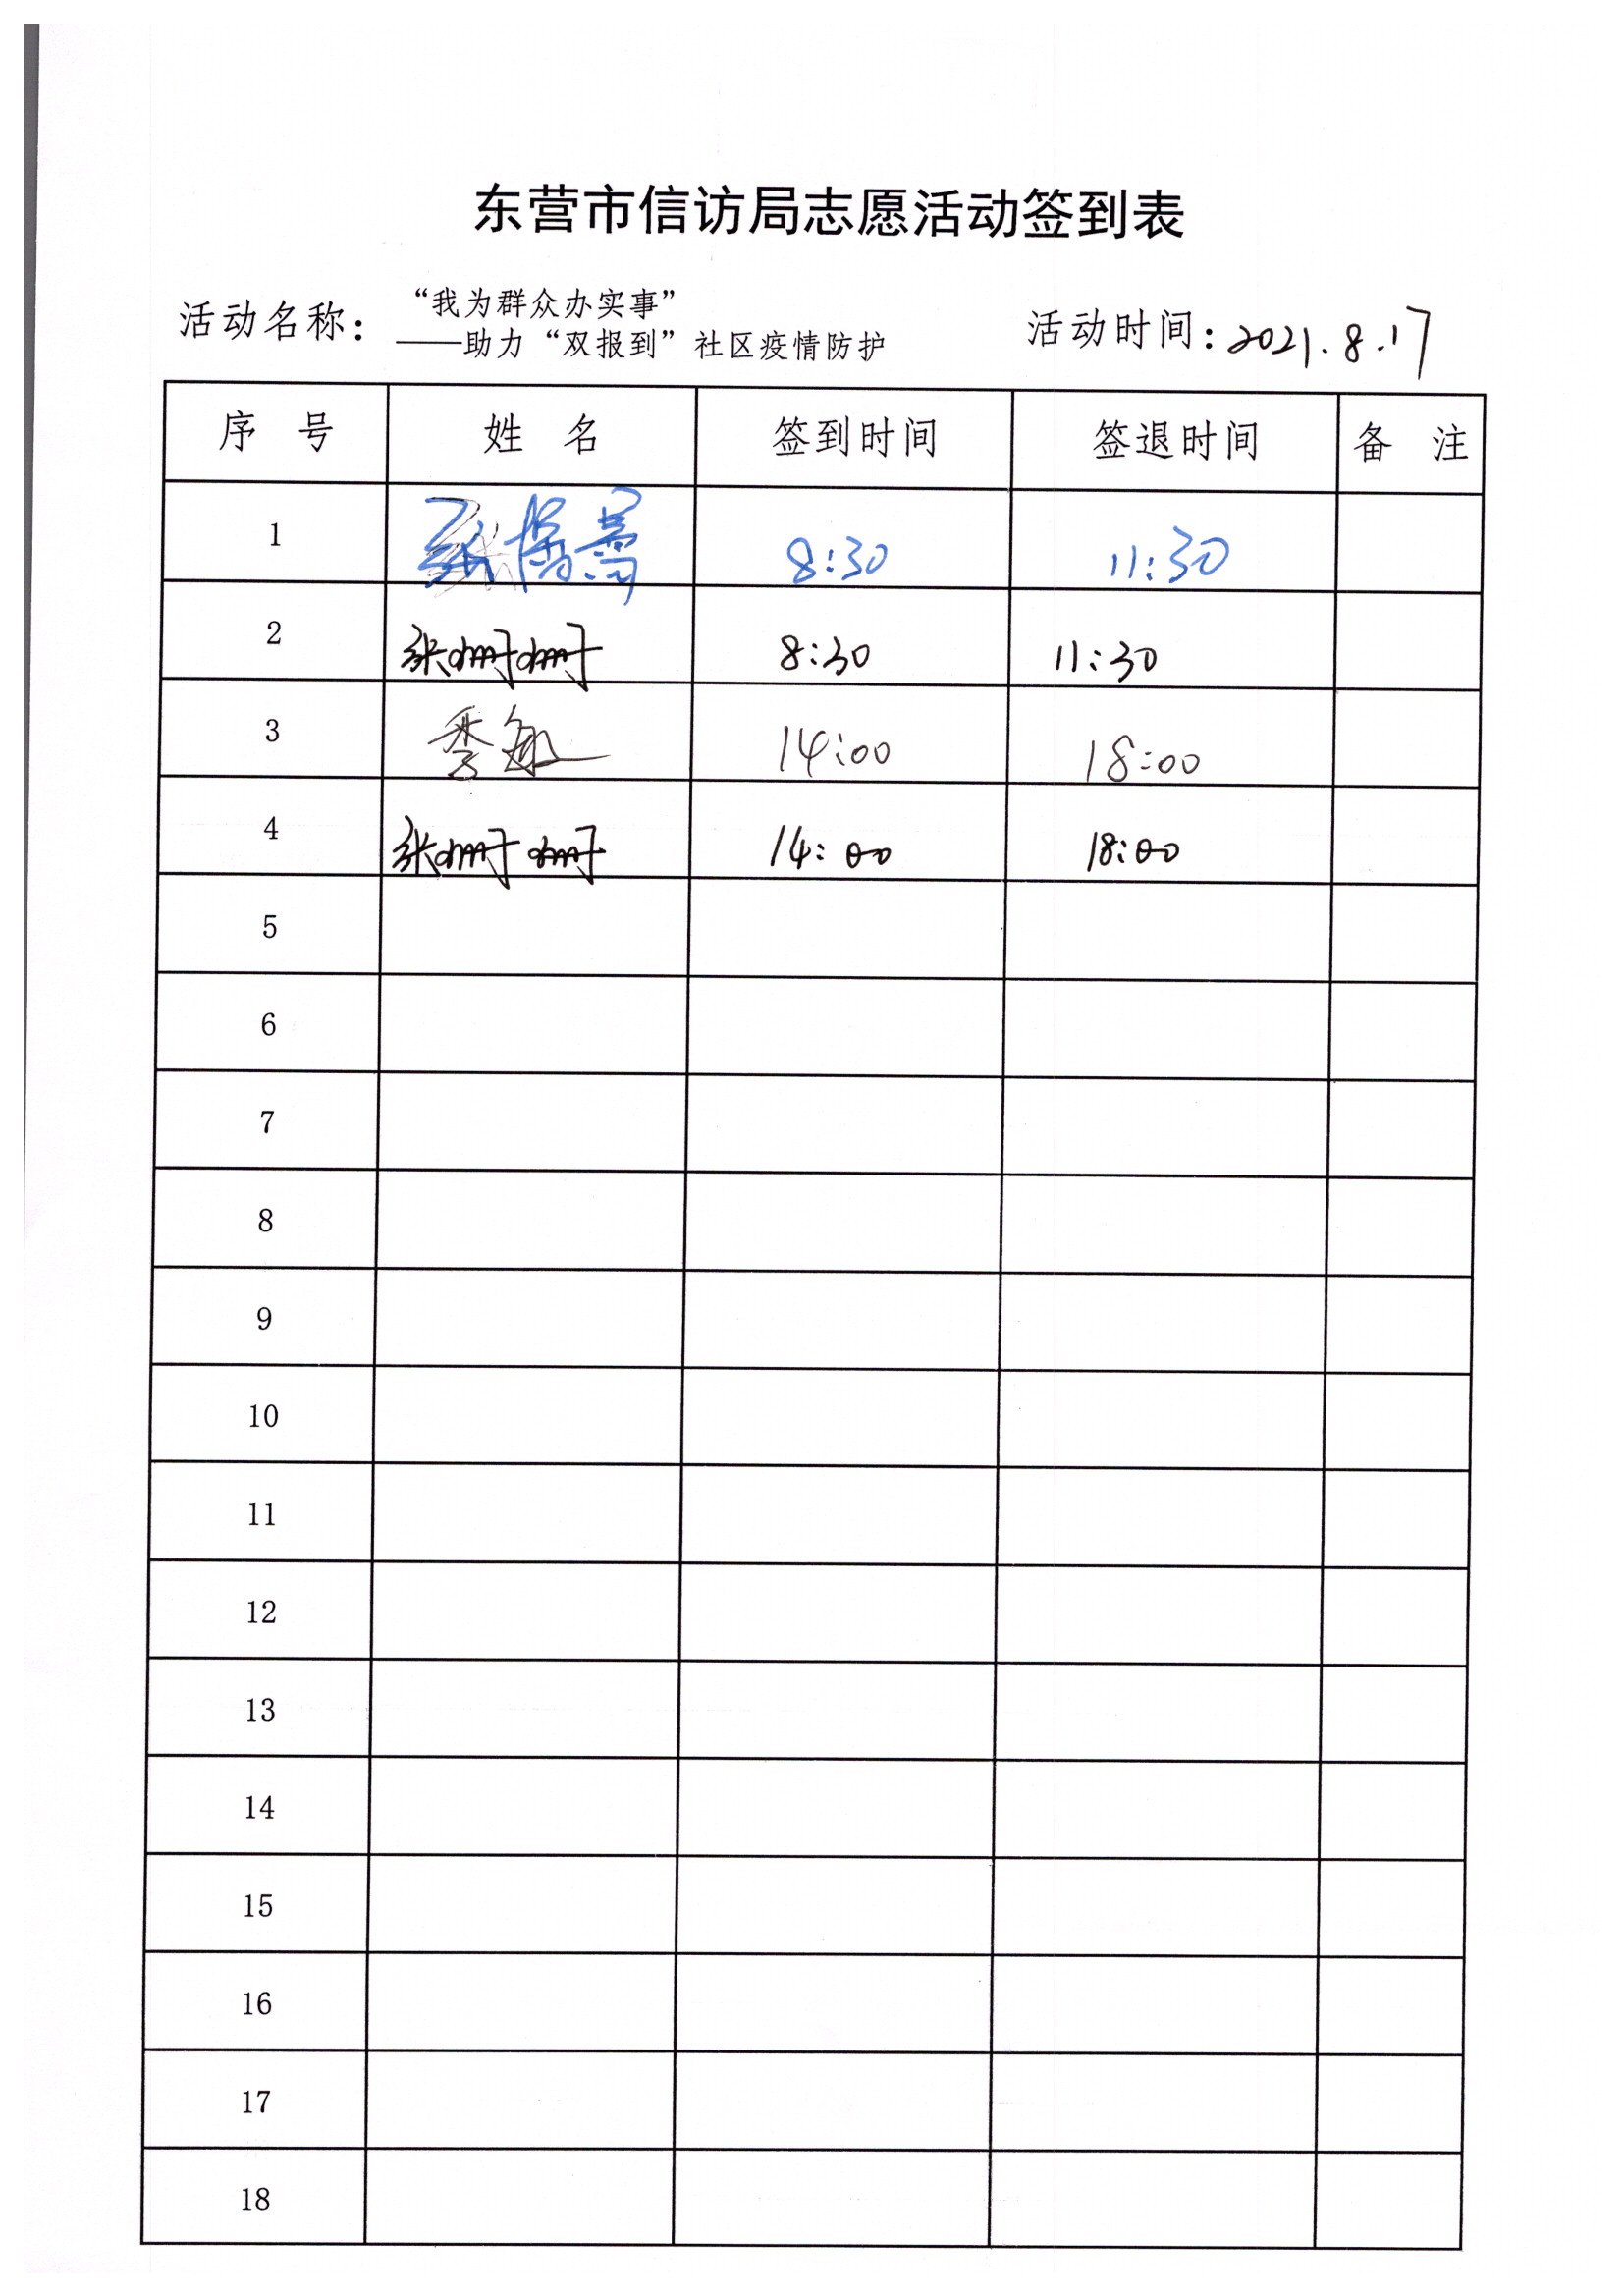 东营市信访局志愿活动签到表
活动名称：“我为群众办实事”
——助力“双报到”社区疫情防护
活动时间：2021.8.17
序 号 姓 名 签到时间 签退时间 备 注
1 8:30 11:30
2 张珊珊 8:30 11:30
3 季敏 14:00 18:00
4 张珊珊 14:00 18:00
5
6
7
8
9
10
11
12
13
14
15
16
17
18